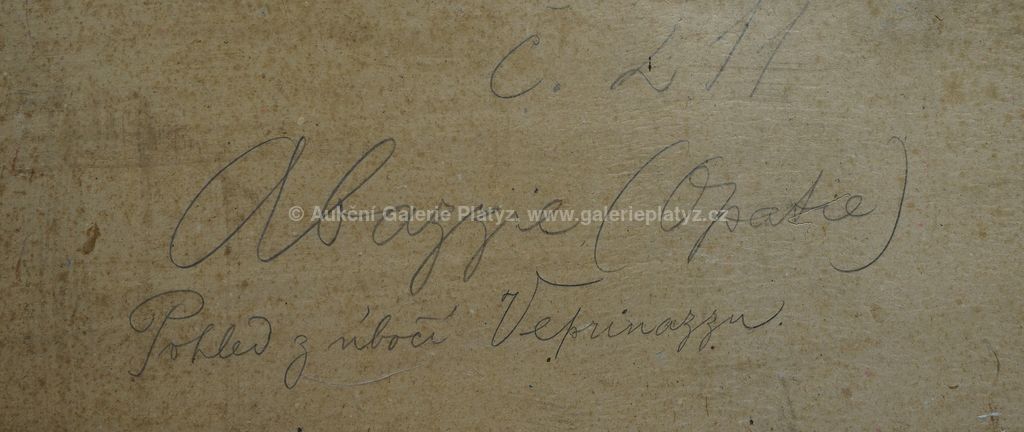 č. 211
Abazzie (Opatie)
© Aukční Galerie Platýz. www.galerieplatyz.cz
Pohled z úbočí Veprinazzu.